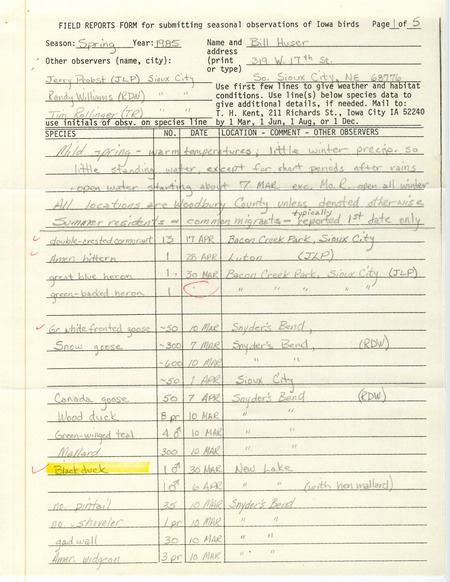 FIELD REPORTS FORM for submitting seasonal observations of Iowa birds Page 1 of 5
Season: Spring Year: 1985 Name and Bill Huser
address 319 W. 17th St.
Other observers (name, city): (print
or type) So. Sioux City, NE 68776
Jerry Probst (JLP) Sioux City
Randy Williams (RDW) " "
Tim Rollinger (TR) " "
Use first few lines to give weather and habitat
conditions. Use line(s) below species data to
give additional details, if needed. Mail to:
T. H. Kent, 211 Richards St., Iowa City IA 52240
use initials of obsv. on species line by 1 Mar, 1 Jun, 1 Aug, or 1 Dec.
SPECIES NO. DATE LOCATION - COMMENT - OTHER OBSERVERS
Mild spring - warm temperatures; little winter precip. so
little standing water except for short periods after rains
. open water starting about 7 MAR exc. Mo. R. open all winter
All locations are Woodbury County unless denoted otherwise
Summer residents & common migrants - typically reported 1st date only
double-crested cormorant 13 17 APR Bacon Creek Park, Sioux City
Amer. bittern 1 28 APR Luton (JLP)
great blue heron 1 30 MAR Bacon Creek Park, Sioux City (JLP)
green-backed heron 1 " " " " "
Gr. white fronted goose ~50 10 MAR Snyder's Bend,
Snow goose ~300 7 MAR Snyder's Bend, (RDW)
~600 10 MAR " "
~50 1 APR Sioux City
Canada goose 50 7 APR Snyder's Bend (RDW)
Wood duck 8 pr 10 MAR " "
Green-winged teal 4♂ 10 MAR " "
Mallard 300 10 MAR " "
Black duck 1♂ 30 MAR New Lake
1♂ 6 APR " " (with hen mallard)
no. pintail 35 10 MAR Snyder's Bend
no. shoveler 1 pr 10 MAR " "
gadwall 30 10 MAR " "
Amer. widgeon 3 pr 10 MAR " "